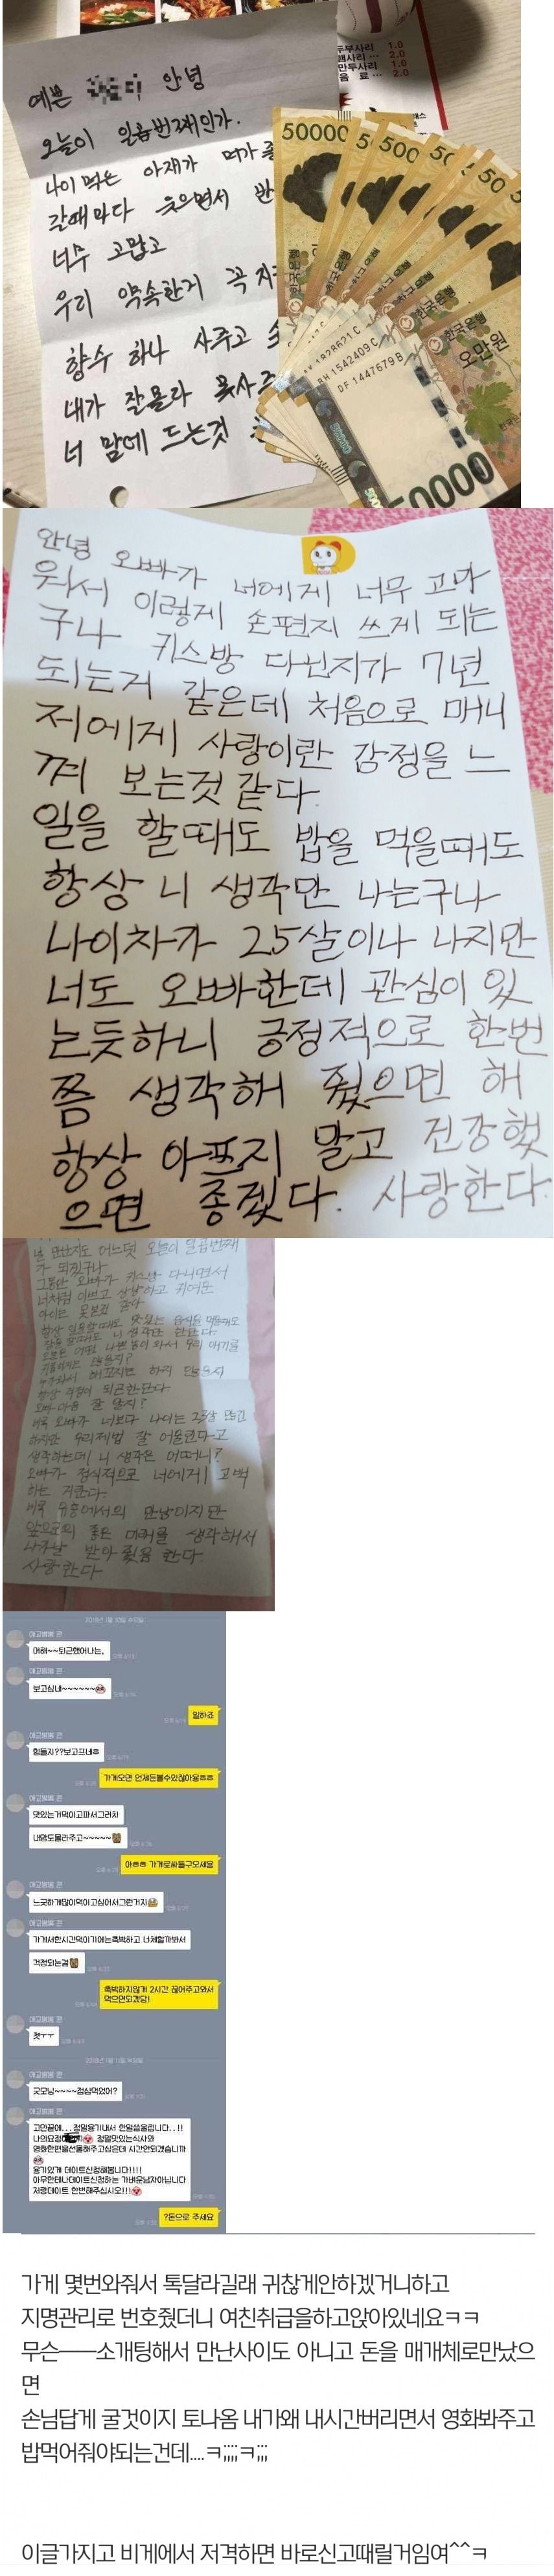 두부사리 1.0
만두사리 1.0
음 료 2.0
예쁜 안녕
오늘이 일곱번째인가.
나이 먹은 아재가 뭐가 좋
갈때마다 웃으면서 반
너무 고맙고
우리 약속한거 꼭 지
향수 하나 사주고
내가 잘몰라 못사
너 맘에 드는것
50000
한국은행
오만원
BH 1542409 C
DF 1447679 B
안녕 오빠가 너에게 너무 고마
워서 이렇게 손편지 쓰게 되는
구나 키스방 다닌지가 7년
되는거 같은데 처음으로 매니
저에게 사랑이란 감정을 느
껴 보는것 같다
일을 할때도 밥을 먹을때도
항상 니 생각만 나는구나
나이차가 25살이나 나지만
너도 오빠한데 관심이 있
는듯하니 긍정적으로 한번
쯤 생각해 줬으면 해
항상 아프지 말고 건강했
으면 좋겠다. 사랑한다.
널 만난지도 어느덧 오늘이 일곱번째
가 되겠구나
그동안 오빠가 키스방 다니면서
너처럼 이쁘고 상냥하고 귀여운
아이는 못본것 같다
항상 일을할때도 맛있는 음식을 먹을때도
잠을 잘때도 니 생각만 한단다
항상 걱정이 되곤한단다
오빠 마음 잘 알지?
비록 오빠가 너보다 나이는 23살 많긴
하지만 우리제법 잘 어울린다고
생각하는데 니 생각은 어떠니?
오빠가 정식적으로 너에게 고백
하는 거란다.
비록 유흥에서의 만남이지만
앞으로의 좋은 미래를 생각해서
나 받아 줬음 한다
사랑한다
2018년 1월 10일 수요일
머해~~퇴근했어나는,
보고싶네~~~~~~
일하죠
힘들지??보고프네ㅎ
가게오면 언제든볼수있잖아용ㅎㅎ
맛있는거먹이고파서그러치
내맘도몰라주고~~~~~
아ㅎㅎ 가게로싸들구오세용
느긋하게많이먹이고싶어서그런거지
가게서한시간먹이기에는촉박하고 너체할까봐서
걱정되는걸
촉박하지않게 2시간 끊어주고와서
먹으면되겠당!
쳇ㅜㅜ
2018년 1월 11일 목요일
굿모닝~~~~점심먹었어?
고민끝에...정말용기내서 한말씀올립니다..!!
나의요정 정말맛있는식사와
영화한편을선물해주고싶은데 시간안되겠습니까
용기있게 데이트신청해봅니다!!!!
아무한테나데이트신청하는 가벼운남자아닙니다
저랑데이트 한번해주십시오!!!
?돈으로 주세요
가게 몇번와줘서 톡달라길래 귀찮게안하겠거니하고
지명관리로 번호줬더니 여친취급을하고앉아있네요ㅋㅋ
무슨――소개팅해서 만난사이도 아니고 돈을 매개체로만났으
면
손님답게 굴것이지 토나옴 내가왜 내시간버리면서 영화봐주고
밥먹어줘야되는건데....ㅋ;;;;ㅋ;;;
이글가지고 비게에서 저격하면 바로신고때릴거임여^^ㅋ